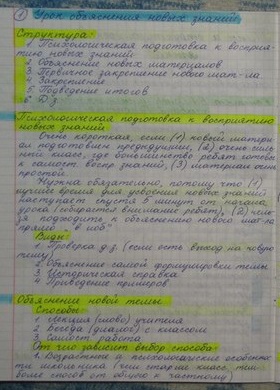 ① Урок объяснения новых знаний
Структура:
1. Психологическая подготовка к восприя-
тию новых знаний
2. Объяснение новых материалов
3. Первичное закрепление нового мат-ла
4. Закрепление
5. Подведение итогов
6. Д/з
Психологическая подготовка к восприятию
новых знаний
Очень короткая, если (1) новый матери-
ал подготовлен предыдущим, (2) очень силь-
ный класс, где большинство ребят готовы
к самост. воспр. знаний, (3) материал очень
простой.
Нужна обязательно, потому что (1)
лучшее время для усвоения новых знаний
наступает спустя 5 минут от начала
урока (собирается внимание ребят), (2) нель-
зя подходить к объяснению нового мат-ла
прямо "в лоб"
Виды:
1. Проверка д.з. (если есть выход на новую
тему)
2. Объяснение самой формулировки темы
3. Историческая справка
4. Приведение примеров
Объяснение новой темы
Способы:
1. Лекция (слово) учителя
2. Беседа (диалог) с классом
3. Самост. работа
От чего зависит выбор способа:
1. Возрастные и психологические особеннос-
ти школьника (чем старше класс, тем
больше способ от общего к частному)